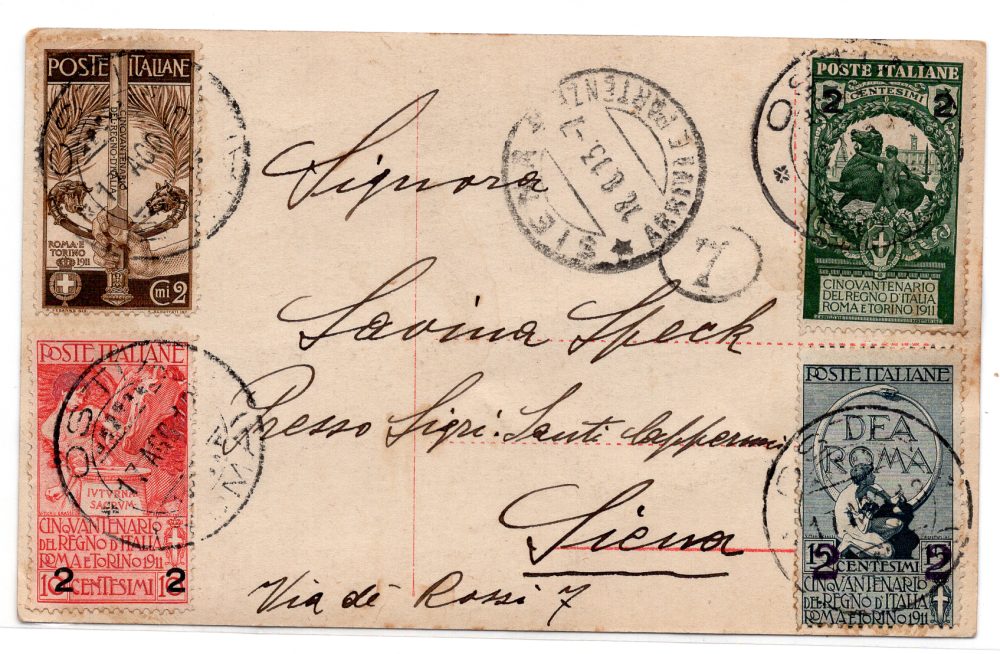 POSTE ITALIANE
CINQVANTENARIO
DEL REGNO D'ITALIA
ROMA E
TORINO
1911
Cmi 2
AGO
SIENA
ARRIVI E PARTENZE
18.8.13-7
POSTE ITALIANE
CENTESIMI
2 2
CINQVANTENARIO
DEL REGNO D'ITALIA
ROMA E TORINO 1911
Signora
Savina Speck
Presso Sigri. Santi Cappernni
Siena
Via de Rossi 7
POSTE ITALIANE
IVTVRNAI
SACRVM
CINQVANTENARIO
DEL REGNO D'ITALIA
ROMA E TORINO 1911
CENTESIMI
2 2
OSTIA
17 AGO
ROMA
POSTE ITALIANE
DEA
ROMA
15 15
2 2
CENTESIMI
CINQVANTENARIO
DEL REGNO D'ITALIA
ROMA E TORINO 1911